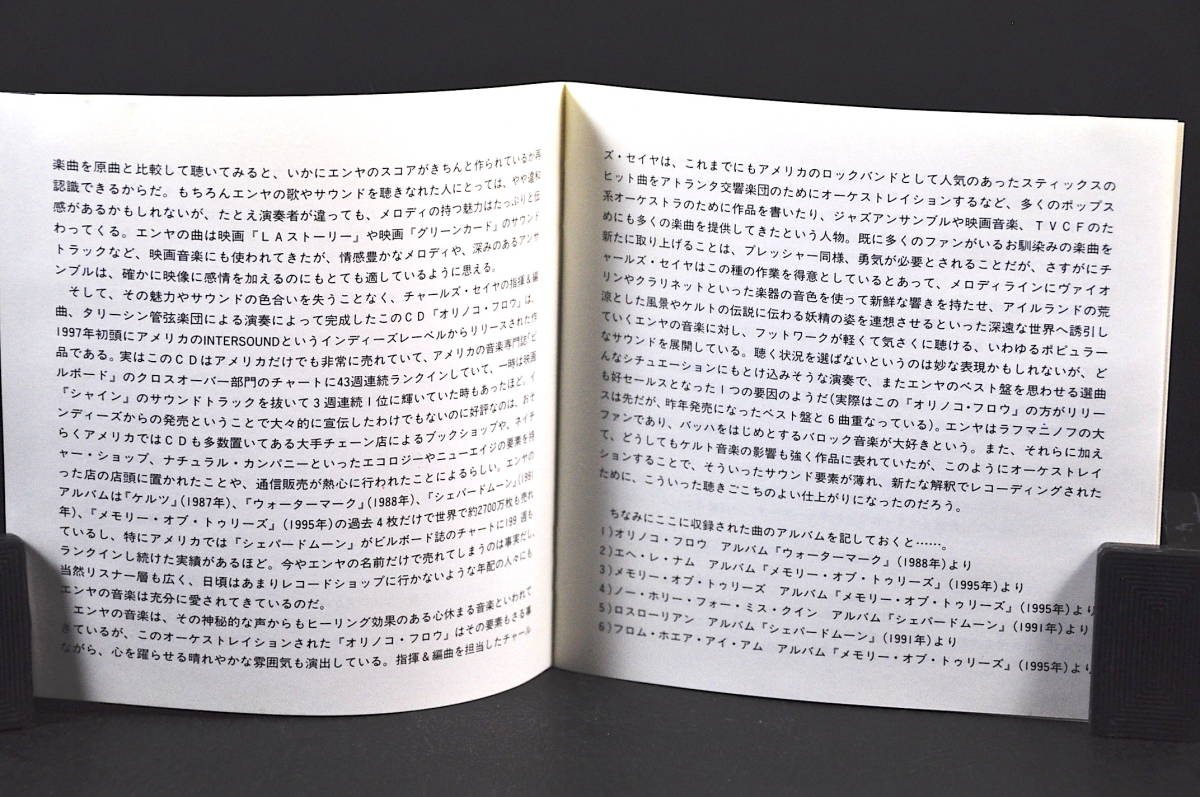 楽曲を原曲と比較して聴いてみると、いかにエンヤのスコアがきちんと作られているか再
認識できるからだ。もちろんエンヤの歌やサウンドを聴きなれた人にとっては、やや違和
感があるかもしれないが、たとえ演奏者が違っても、メロディの持つ魅力はたっぷりと伝
わってくる。エンヤの曲は映画『ＬＡストーリー』や映画『グリーンカード』のサウンド
トラックなど、映画音楽にも使われてきたが、情感豊かなメロディや、深みのあるアンサ
ンブルは、確かに映像に感情を加えるのにもとても適しているように思える。
　そして、その魅力やサウンドの色合いを失うことなく、チャールズ・セイヤの指揮＆編
曲、タリーシン管弦楽団による演奏によって完成したこのＣＤ『オリノコ・フロウ』は、
1997年初頭にアメリカのINTERSOUNDというインディーズレーベルからリリースされた作
品である。実はこのＣＤはアメリカだけでも非常に売れていて、アメリカの音楽専門誌『ビ
ルボード』のクロスオーバー部門のチャートに43週連続ランクインしていて、一時は映画
『シャイン』のサウンドトラックを抜いて３週連続１位に輝いていた時もあったほど。イ
ンディーズからの発売ということで大々的に宣伝したわけでもないのに好評なのは、おそ
らくアメリカではＣＤも多数置いてある大手チェーン店によるブックショップや、ネイチ
ャー・ショップ、ナチュラル・カンパニーといったエコロジーやニューエイジの要素を持
った店の店頭に置かれたことや、通信販売が熱心に行われたことによるらしい。エンヤの
アルバムは『ケルツ』(1987年)、『ウォーターマーク』(1988年)、『シェパードムーン』(1991
年)、『メモリー・オブ・トゥリーズ』(1995年)の過去４枚だけで世界で約2700万枚も売れ
ているし、特にアメリカでは『シェパードムーン』がビルボード誌のチャートに199週も
ランクインし続けた実績があるほど。今やエンヤの名前だけで売れてしまうのは事実だし、
当然リスナー層も広く、日頃はあまりレコードショップに行かないような年配の人々にも
エンヤの音楽は充分に愛されてきているのだ。
　エンヤの音楽は、その神秘的な声からもヒーリング効果のある心休まる音楽といわれて
きているが、このオーケストレイションされた『オリノコ・フロウ』はその要素もさる事
ながら、心を躍らせる晴れやかな雰囲気も演出している。指揮＆編曲を担当したチャール
ズ・セイヤは、これまでにもアメリカのロックバンドとして人気のあったスティックスの
ヒット曲をアトランタ交響楽団のためにオーケストレイションするなど、多くのポップス
系オーケストラのために作品を書いたり、ジャズアンサンブルや映画音楽、ＴＶＣＦのた
めにも多くの楽曲を提供してきたという人物。既に多くのファンがいるお馴染みの楽曲を
新たに取り上げることは、プレッシャー同様、勇気が必要とされることだが、さすがにチ
ャールズ・セイヤはこの種の作業を得意としているとあって、メロディラインにヴァイオ
リンやクラリネットといった楽器の音色を使って新鮮な響きを持たせ、アイルランドの荒
涼とした風景やケルトの伝説に伝わる妖精の姿を連想させるといった深遠な世界へ誘引し
ていくエンヤの音楽に対し、フットワークが軽くて気さくに聴ける、いわゆるポピュラー
なサウンドを展開している。聴く状況を選ばないというのは妙な表現かもしれないが、ど
んなシチュエーションにもとけ込みそうな演奏で、またエンヤのベスト盤を思わせる選曲
も好セールスとなった１つの要因のようだ(実際はこの『オリノコ・フロウ』の方がリリー
スは先だが、昨年発売になったベスト盤と６曲重なっている)。エンヤはラフマニノフの大
ファンであり、バッハをはじめとするバロック音楽が大好きという。また、それらに加え
て、どうしてもケルト音楽の影響も強く作品に表れていたが、このようにオーケストレイ
ションすることで、そういったサウンド要素が薄れ、新たな解釈でレコーディングされた
ために、こういった聴きごこちのよい仕上がりになったのだろう。
　ちなみにここに収録された曲のアルバムを記しておくと……。
１)オリノコ・フロウ　アルバム『ウォーターマーク』(1988年)より
２)エヘ・レ・ナム　アルバム『メモリー・オブ・トゥリーズ』(1995年)より
３)メモリー・オブ・トゥリーズ　アルバム『メモリー・オブ・トゥリーズ』(1995年)より
４)ノー・ホリー・フォー・ミス・クイン　アルバム『シェパードムーン』(1991年)より
５)ロスローリアン　アルバム『シェパードムーン』(1991年)より
６)フロム・ホエア・アイ・アム　アルバム『メモリー・オブ・トゥリーズ』(1995年)より